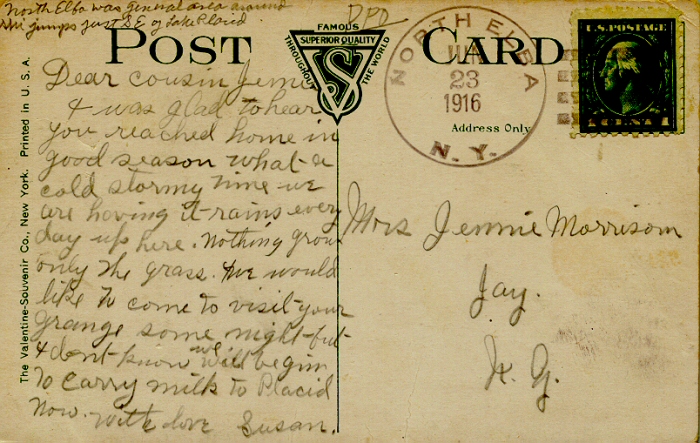 North Elba was general area around
ski jumps just S E of Lake Placid
DPO
POST CARD
FAMOUS
THROUGHOUT
SUPERIOR QUALITY
THE WORLD
VS
NORTH ELBA
23
1916
N. Y.
U.S. POSTAGE
1 CENT 1
Address Only
The Valentine-Souvenir Co., New York. Printed in U. S. A.
Dear cousin Jennie
I was glad to hear
you reached home in
good season what a
cold stormy time we
are having it rains every
day up here. Nothing grows
only the grass. We would
like to come to visit your
grange some night but
I dont know we will begin
to carry milk to Placid
now. with love Susan.
Mrs Jennie Morrison
Jay.
N. Y.